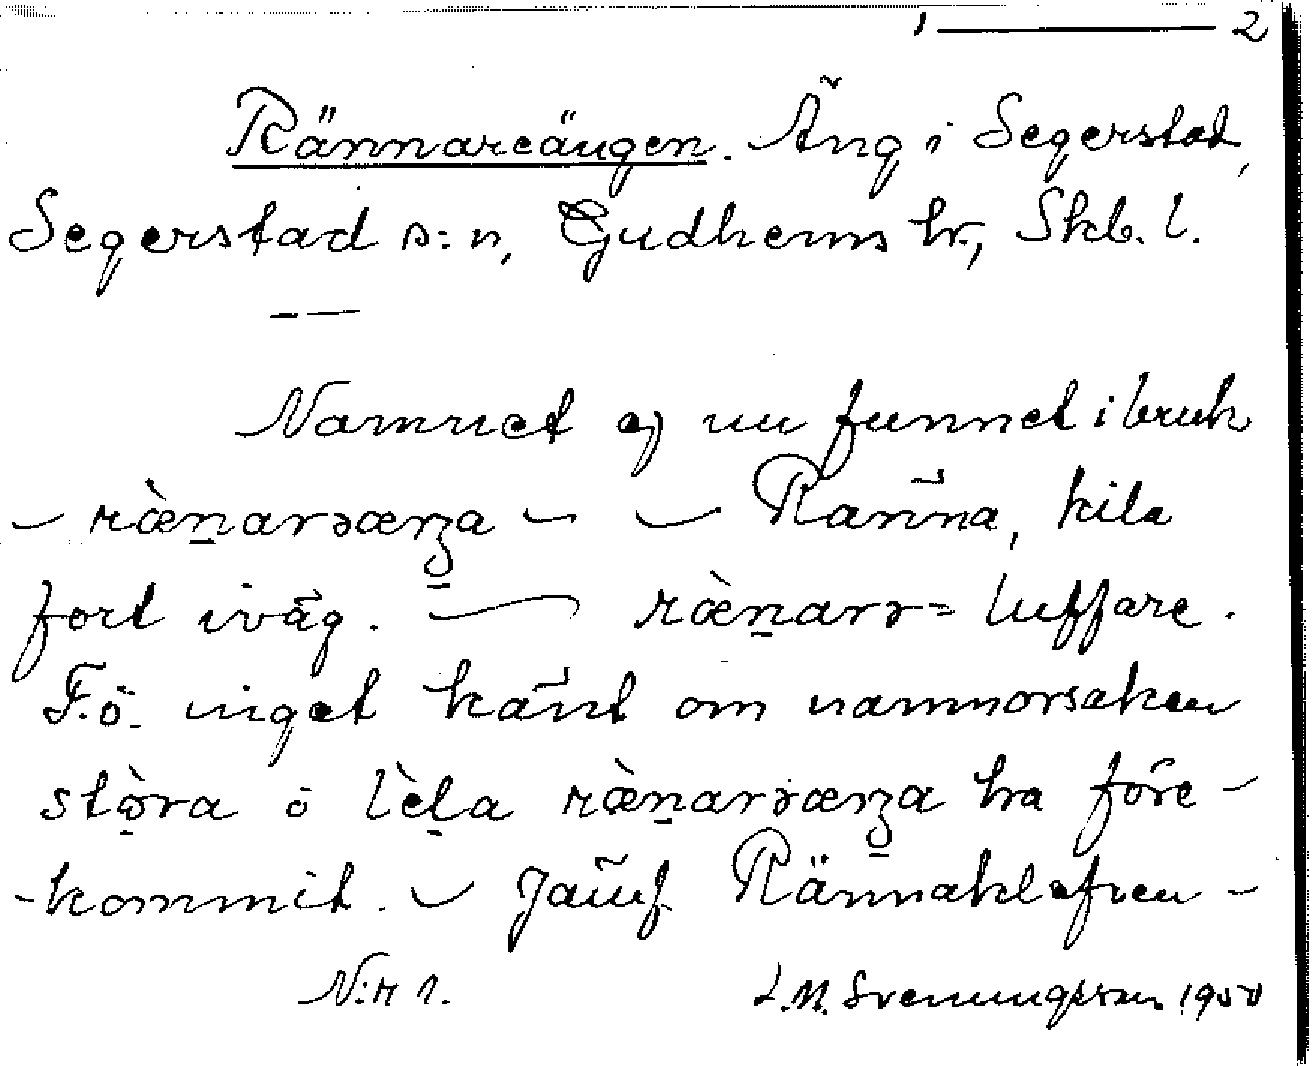 1 — 2
Rännareängen. Äng i Segerstad,
Segerstad s:n, Gudhems hr, Skb. l.
— —
Namnet ej nu funnet i bruk
– ræ̀n̲arəæŋa – – Ränna, kila
fort iväg. — ræ̀n̲arə = luffare.
F.ö. inget känt om namnorsaken
stò̲ra ò lèl̲a ræ̀n̲arəæŋa ha före-
-kommit. – Jämf. Rännaklefven –
N:r 1. L.M. Svenungsson 1950